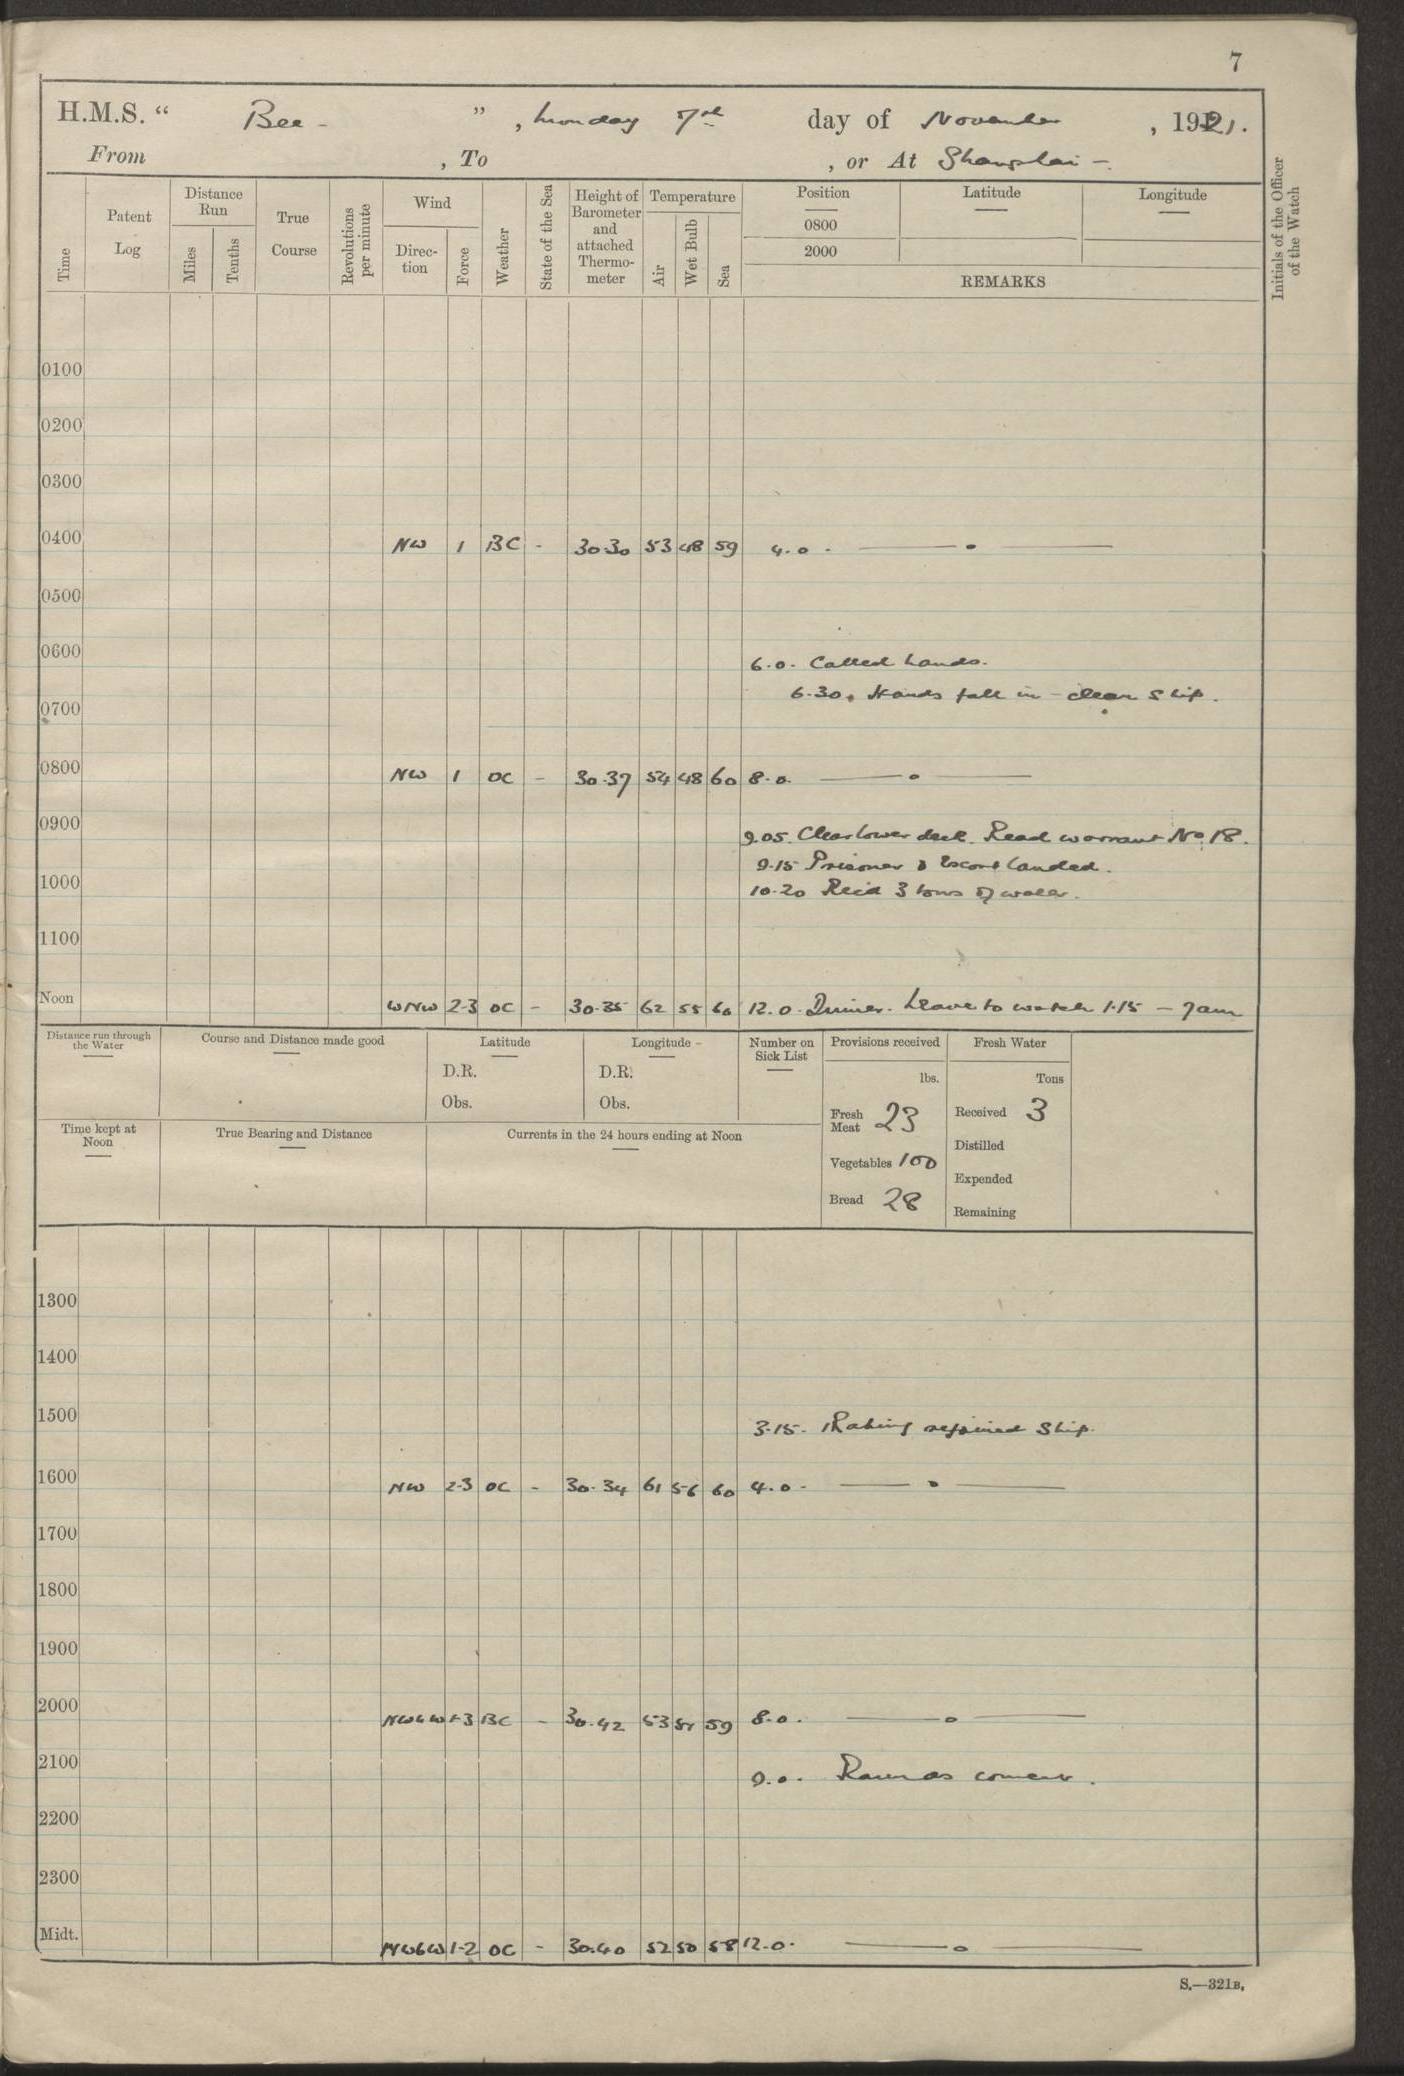 7
H.M.S. “ Bee - ” , Monday 7th day of November , 1921.
From , To , or At Shanghai -
Time
Patent Log
Distance Run
Miles
Tenths
True Course
Revolutions per minute
Wind
Direction
Force
Weather
State of the Sea
Height of Barometer and attached Thermometer
Temperature
Air
Wet Bulb
Sea
Position Latitude Longitude
0800
2000
REMARKS
Initials of the Officer of the Watch
0100
0200
0300
0400 NW 1 BC - 30.30 53 48 59 4.0.
0500
0600
6.0. Called hands.
6.30. Hands fall in - clean ship.
0700
0800 NW 1 OC - 30.37 54 48 60 8.0.
0900
9.05. Clear lower deck. Read warrant No 18.
9.15 Prisoner & Escort landed.
1000
10.20 Recd 3 tons of water.
1100
Noon WNW 2-3 OC - 30.35 62 55 60 12.0. Dinner. Leave to watch 1.15 - 7am
Distance run through the Water
Course and Distance made good
Latitude
D.R.
Obs.
Longitude -
D.R.
Obs.
Number on Sick List
Provisions received
lbs.
Fresh Meat 23
Vegetables 100
Bread 28
Fresh Water
Tons
Received 3
Distilled
Expended
Remaining
Time kept at Noon
True Bearing and Distance
Currents in the 24 hours ending at Noon
1300
1400
1500
3.15. 1 Rating rejoined Ship.
1600 NW 2-3 OC - 30.34 61 56 60 4.0.
1700
1800
1900
2000 NWbW 1-3 BC - 30.42 53 51 59 8.0.
2100
9.0. Rounds correct.
2200
2300
Midt. NWbW 1-2 OC - 30.40 52 50 58 12.0.
S.—321B.